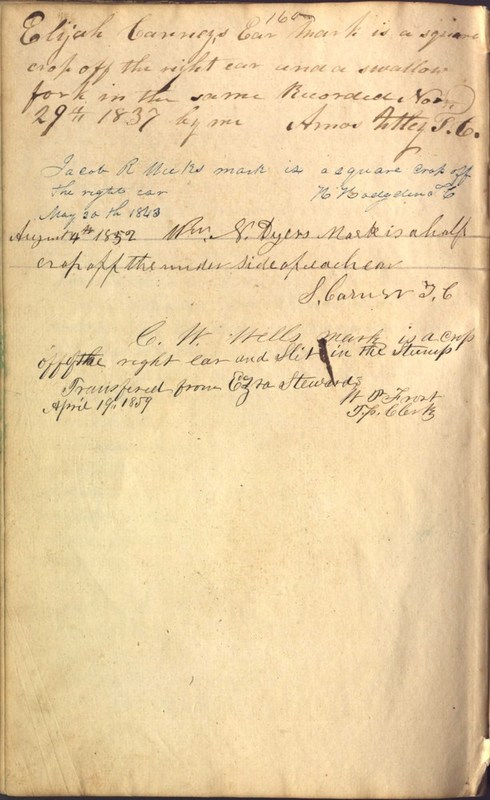 160
Elijah Canneys Ear Mark is a square
crop off the right ear and a swallow
fork in the same Recorded Nov
29th 1837 by me Amos Utley T. C.
Jacob R Meeks mark is a square crop off
the right ear N Hodgdin T C
May 20th 1843
August 4th 1852 Wm N. Dyers Mark is a half
crop off the under side of each ear
S. Carver T, C
C. W. Wells mark is a crop
off the right ear and slit in the stump
Transfired from Ezra Stewards
April 19, 1859 W P Frost
T.p. Clerk